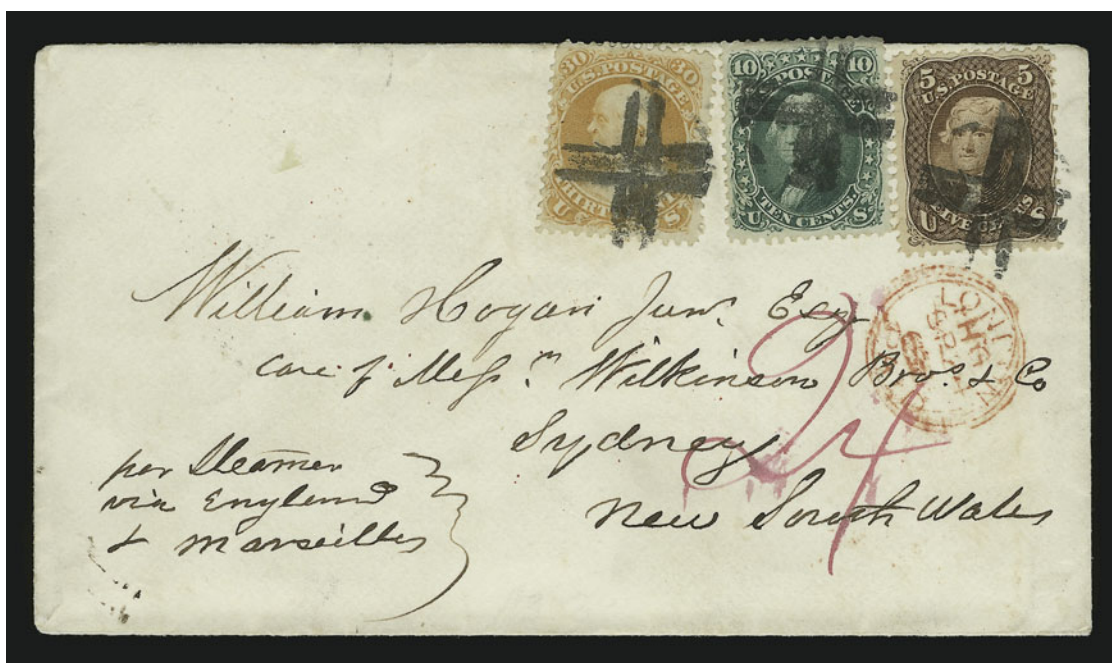 30 U.S. POSTAGE 30
10 U.S. POSTAGE 10
TEN CENTS
U S
5 U.S. POSTAGE 5
U S
LONDON
William Hogan Junr. Esq
Care of Messrs. Wilkinson Bros. & Co
Sydney
New South Wales
24
per Steamer
via England
& Marseilles